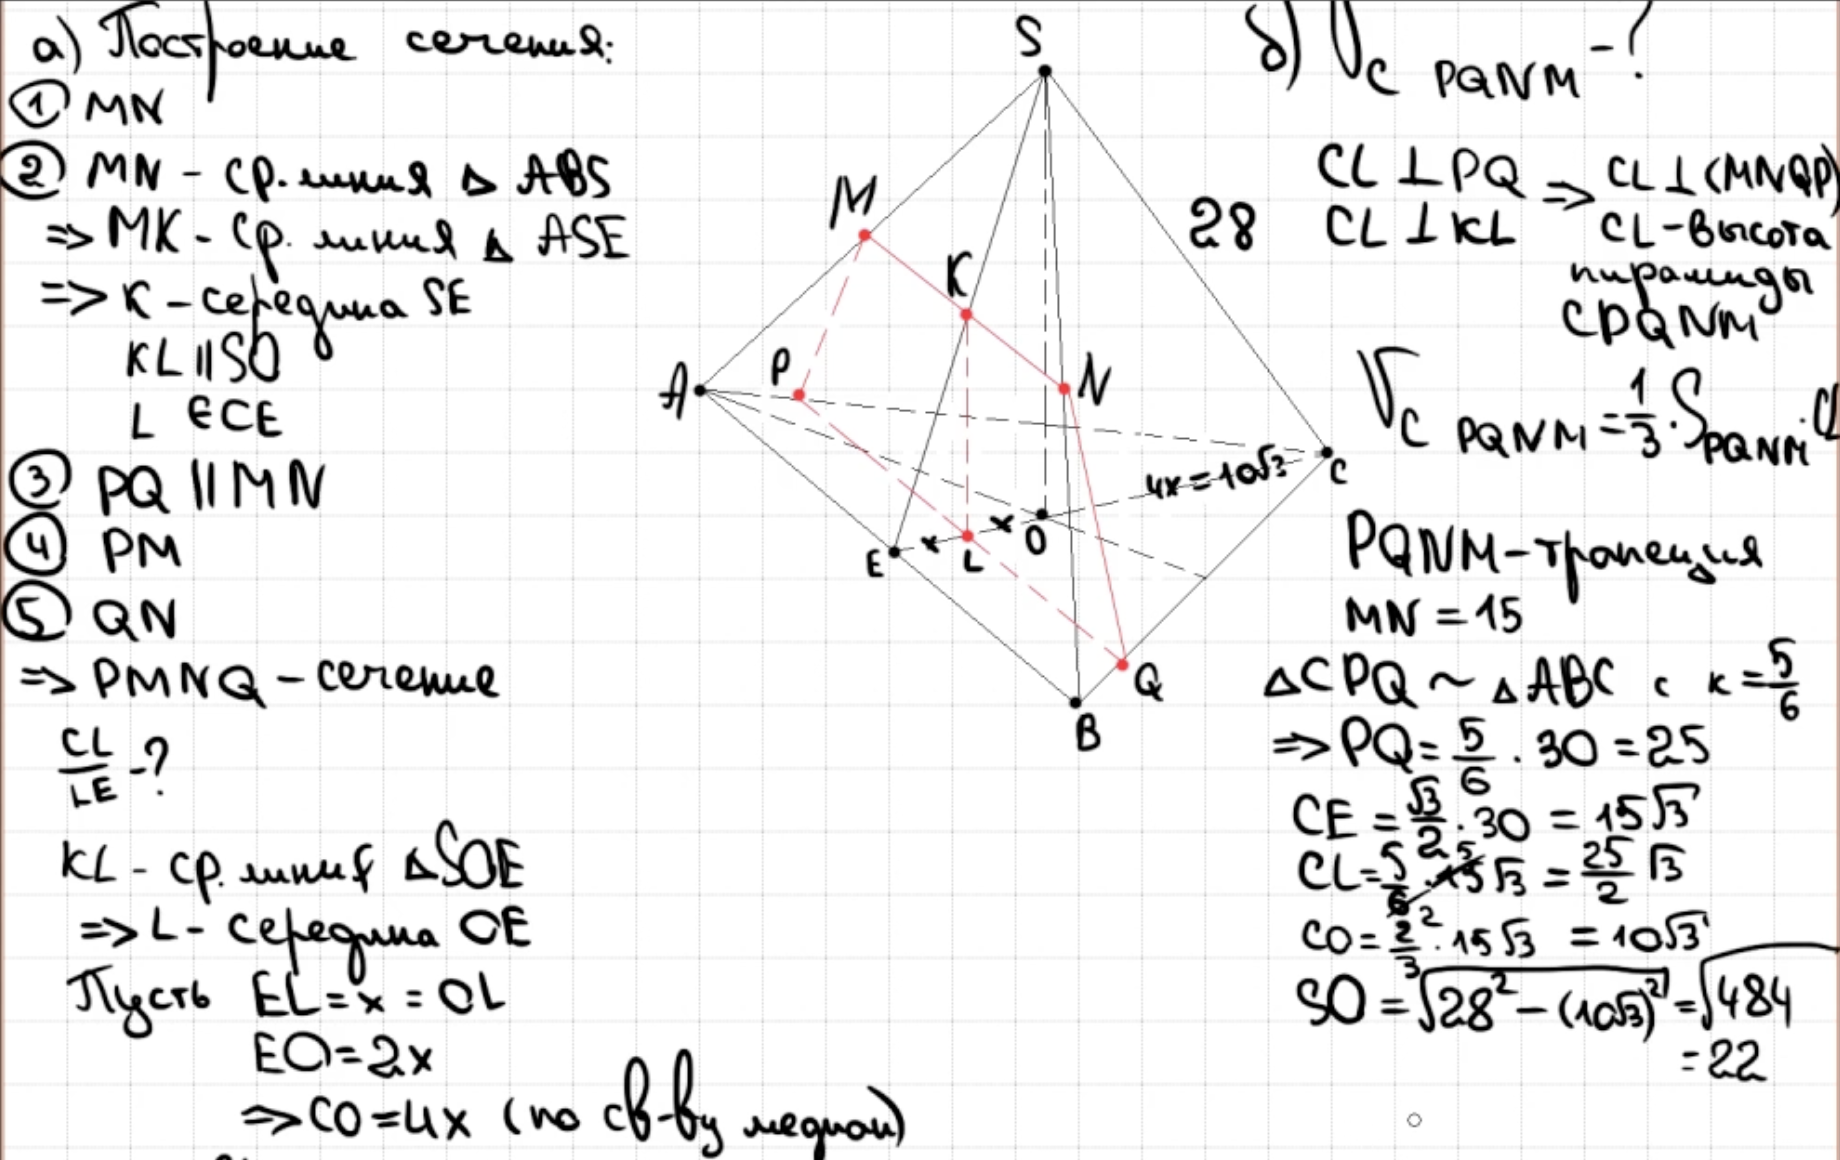 а) Построение сечения:
① MN
② MN - ср. линия △ ABS
=> MK - ср. линия △ ASE
=> K - середина SE
KL || SO
L ∈ CE
③ PQ || MN
④ PM
⑤ QN
=> PMNQ - сечение
CL/LE - ?
KL - ср. линия △SOE
=> L - середина OE
Пусть EL = x = OL
EO = 2x
=> CO = 4x (по св-ву медиан)
S
M
28
K
A
P
N
4x = 10√3
C
x
x
O
E
L
Q
B
б) V C PQNM - ?
CL ⊥ PQ => CL ⊥ (MNQP)
CL ⊥ KL CL - высота
пирамиды
CPQNM
V C PQNM = 1/3 · S PQNM · CL
PQNM - трапеция
MN = 15
△CPQ ~ △ABC с к = 5/6
=> PQ = 5/6 · 30 = 25
CE = √3/2 · 30 = 15√3
CL = 5/6 · 15√3 = 25/2 √3
CO = 2/3 · 15√3 = 10√3
SO = √28² - (10√3)² = √484
= 22